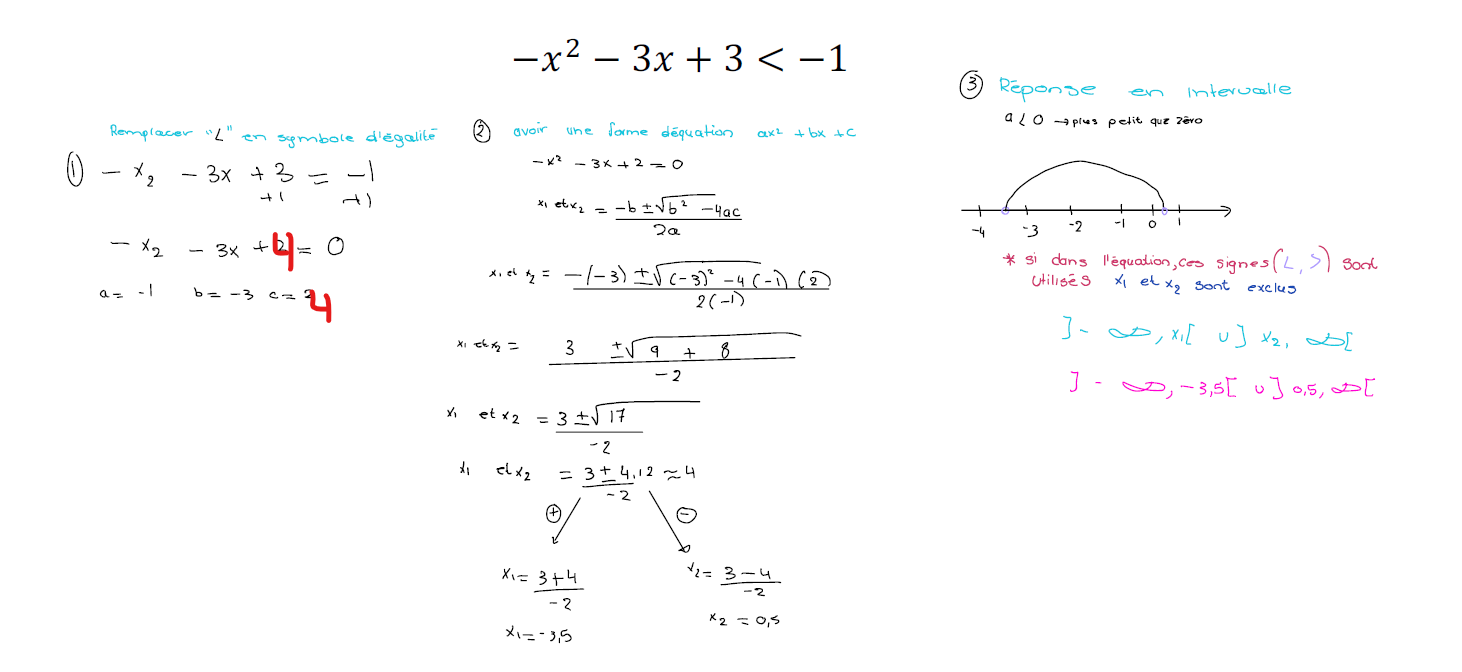 −x² − 3x + 3 < −1
Remplacer "<" en symbole d'égalité
① − x₂ − 3x + 3 = −1
+1 +1
− x₂ − 3x + 4 = 0
a = -1 b = -3 c = 4
② avoir une forme déquation ax² + bx + c
-x² - 3x + 2 = 0
x₁ et x₂ = (-b ± √(b² - 4ac)) / 2a
x₁ et x₂ = (-(-3) ± √((-3)² - 4(-1)(2))) / 2(-1)
x₁ et x₂ = (3 ± √(9 + 8)) / -2
x₁ et x₂ = (3 ± √17) / -2
x₁ et x₂ = (3 ± 4,12) / -2 ≈ 4
⊕ ⊖
x₁ = (3+4) / -2
x₁ = -3,5
x₂ = (3-4) / -2
x₂ = 0,5
③ Réponse en intervalle
a < 0 → plus petit que zéro
-4 -3 -2 -1 0 1
* si dans l'équation, ces signes (<, >) sont
utilisés x₁ et x₂ sont exclus
]-∞, x₁[ ∪ ]x₂, ∞[
]-∞, -3,5[ ∪ ]0,5, ∞[